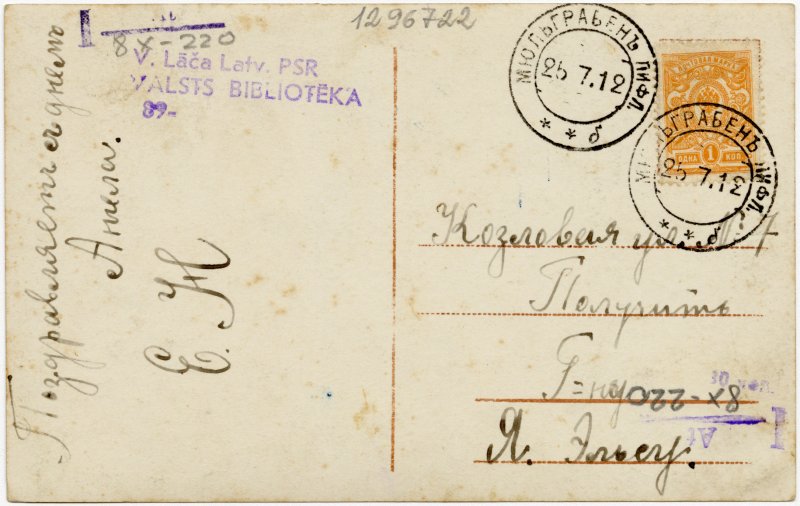 1296722
8X-220
V. Lāča Latv. PSR
VALSTS BIBLIOTĒKA
89-
Поздравляетъ съ днемъ
Ангела.
Е. Н
МЮЛЬГРАБЕНЪ ЛИФЛ.
25 7.12
* * б
ПОЧТОВАЯ МАРКА
ОДНА 1 КОП.
МЮЛЬГРАБЕНЪ ЛИФЛ.
25 7.12
* * б
Козловая ул. 7
Получить
Г-ну
8X-220
Я. Эльсу.